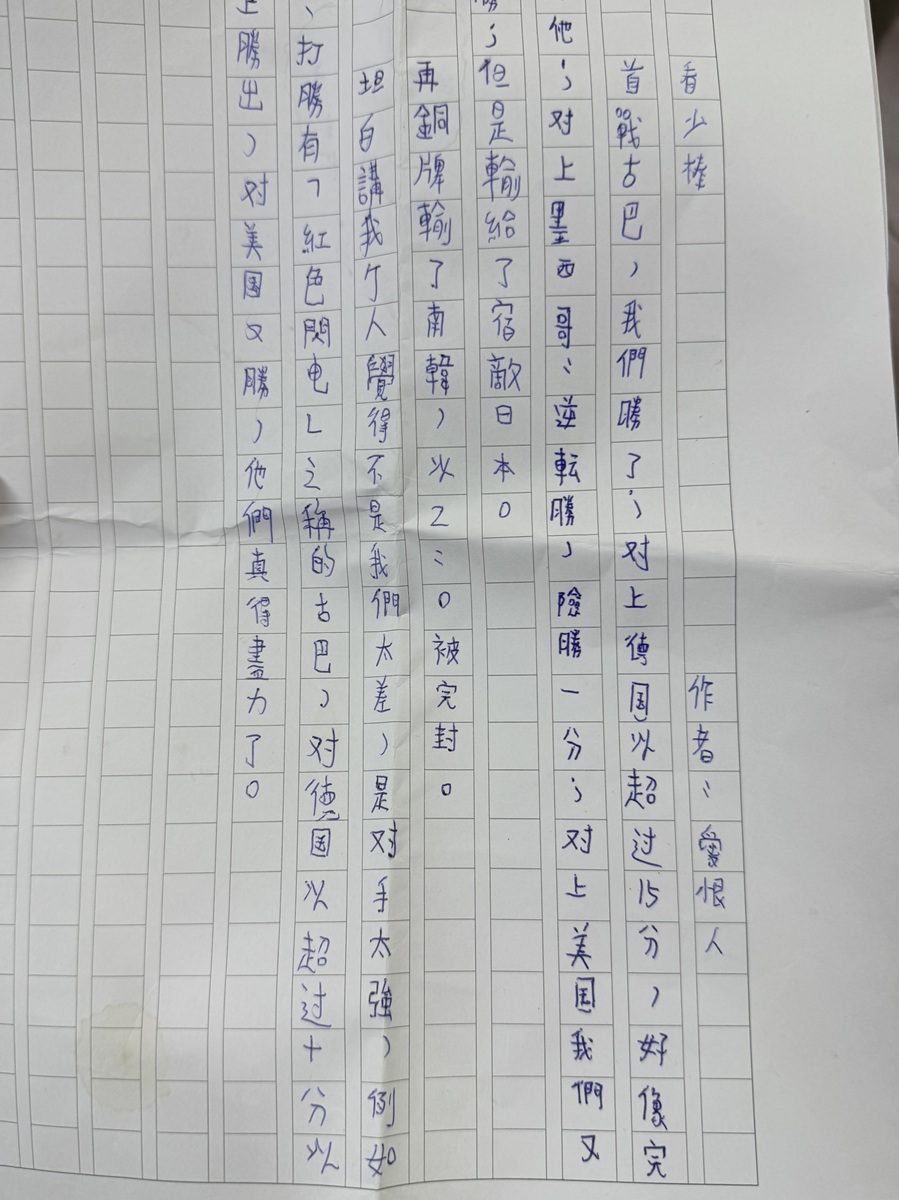 看少棒 作者：愛恨人
首戰古巴，我們勝了；对上德国以超过15分，好像完
他；对上墨西哥：逆転勝，險勝一分；对上美国我們又
勝；但是輸給了宿敵日本。
再銅牌輸了南韓，以2：0被完封。
坦白講我个人覺得不是我們太差，是对手太強，例如
，打勝有「紅色閃电」之稱的古巴，对德国以超过十分以
上勝出，对美国又勝，他們真得盡力了。